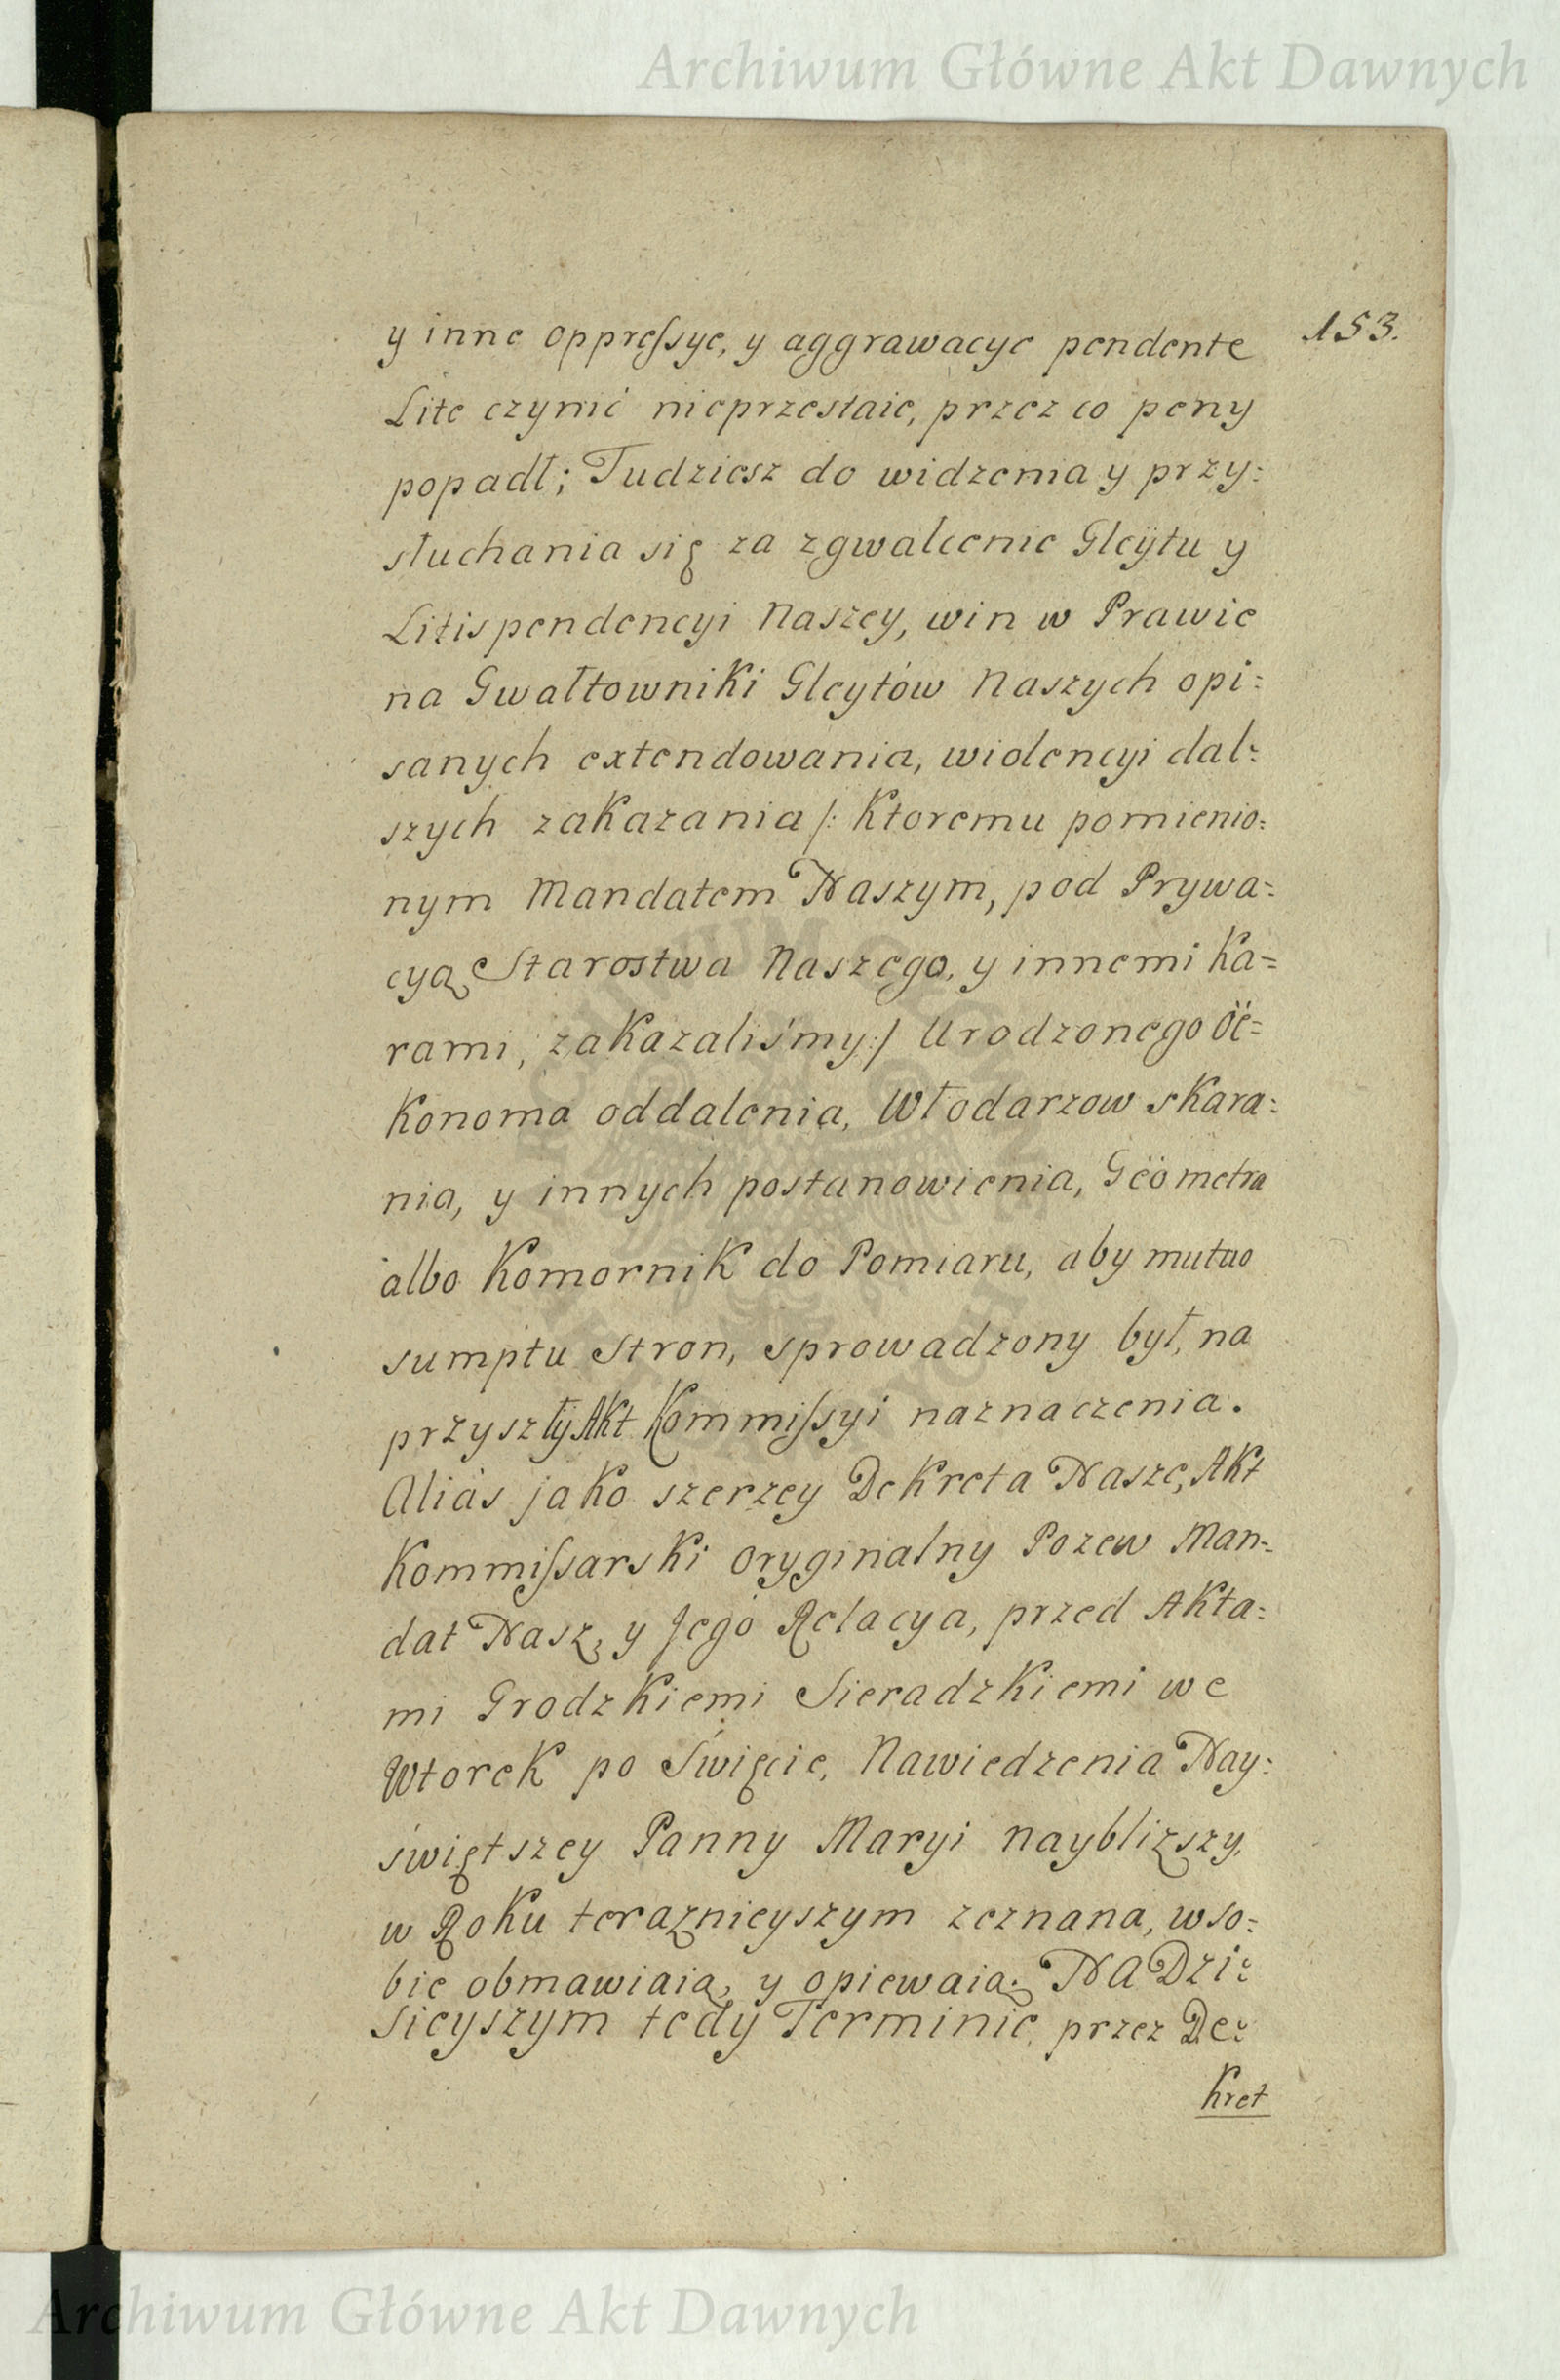 Archiwum Główne Akt Dawnych
153.
y inne oppreſsye, y aggrawacye pendente
Lite czynić nieprzestaie, przez co peny
popadł; Tudziesz do widzenia y przy:
słuchania się za zgwałcenie Gleÿtu y
Litispendencyi Naszey, win w Prawie
na Gwałtowniki Gleytów Naszych opi:
sanych extendowania, wiolencyi dal:
szych zakazania /: Ktoremu pomienio:
nym Mandatem Naszym, pod Prywa:
cyą Starostwa Naszego, y innemi Ka=
rami, zakazaliśmy :/ Urodzonego Öë=
Konoma oddalenia, Włodarzow skara:
nia, y innych postanowienia, Gëömetra
albo Komornik do Pomiaru, aby mutuo
sumptu Stron, sprowadzony był, na
przyszłÿ Akt Kommiſsyi naznaczenia.
Aliàs jako szerzey Dekreta Nasze, Akt
Kommiſsarski oryginalny Pozew Man=
dat Nasz, y Jego Relacya, przed Akta:
mi Grodzkiemi Sieradzkiemi we
Wtorek po Święcie, Nawiedzenia Nay:
świętszey Panny Maryi naybliższy,
w Roku teraznieyszym zeznana, w so:
bie obmawiaią, y opiewaią. NA Dzi:
sieyszym tedy Terminie, przez De:
kret
Archiwum Główne Akt Dawnych